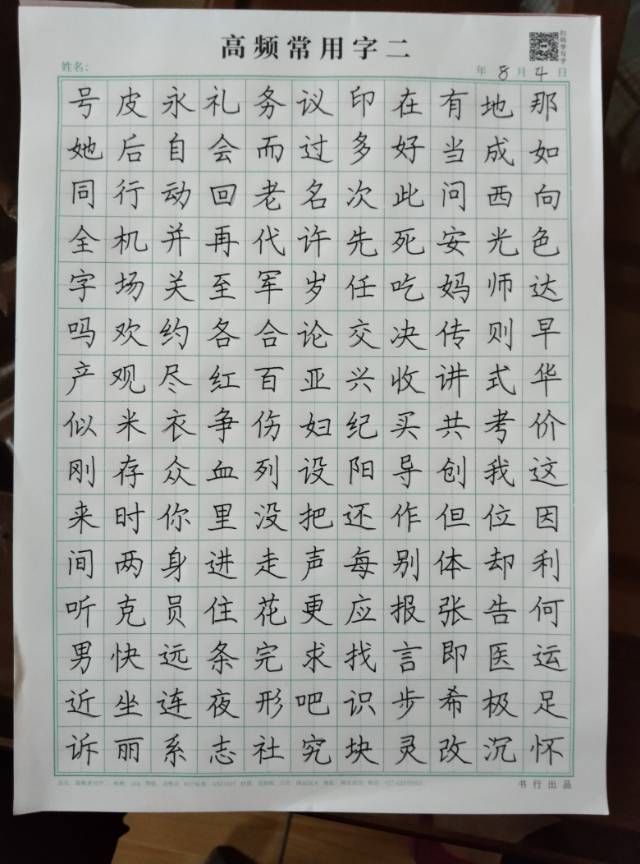 高频常用字二
扫码享写字
姓名:
年 8 月 4 日
号皮永礼务议印在有地那
她后自会而过多好当成如
同行动回老名次此问西向
全机并再代许先死安光色
字场关至军岁任吃妈师达
吗欢约各合论交决传则早
产观尽红百亚兴收讲式华
似米衣争伤妇纪买共考价
刚存众血列设阳导创我这
来时你里没把还作但位因
间两身进走声每别体却利
听克员住花更应报张告何
男快远条完求找言即医运
近坐连夜形吧识步希极足
诉丽系志社究块灵改沉怀
书行出品